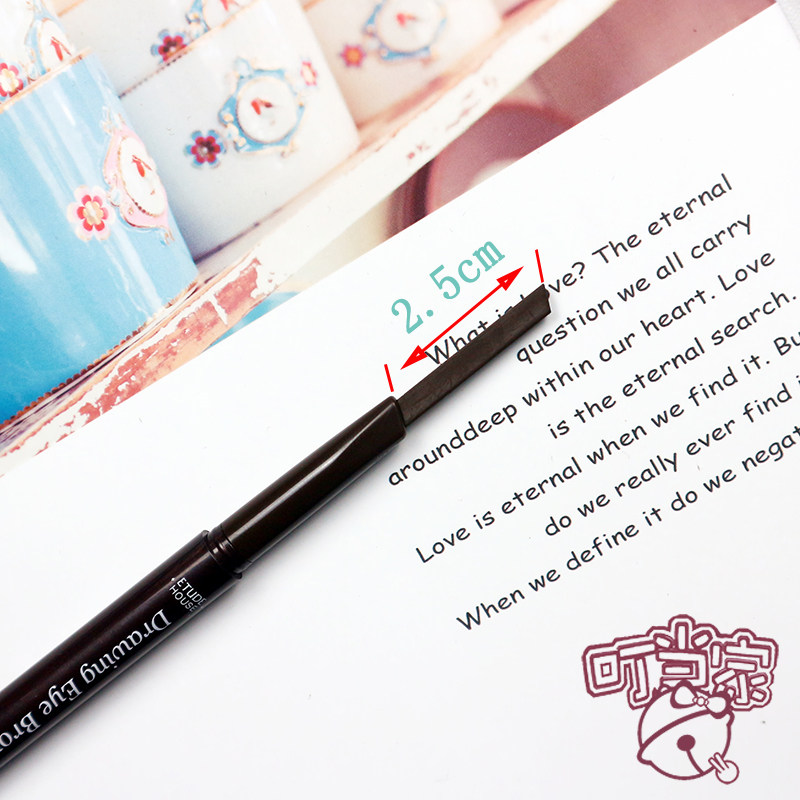 2.5cm
What is Love? The eternal
question we all carry
arounddeep within our heart. Love
is the eternal search.
Love is eternal when we find it. Bu
do we really ever find i
When we define it do we negat
ETUDE
HOUSE
Drawing Eye Bro
叮当家